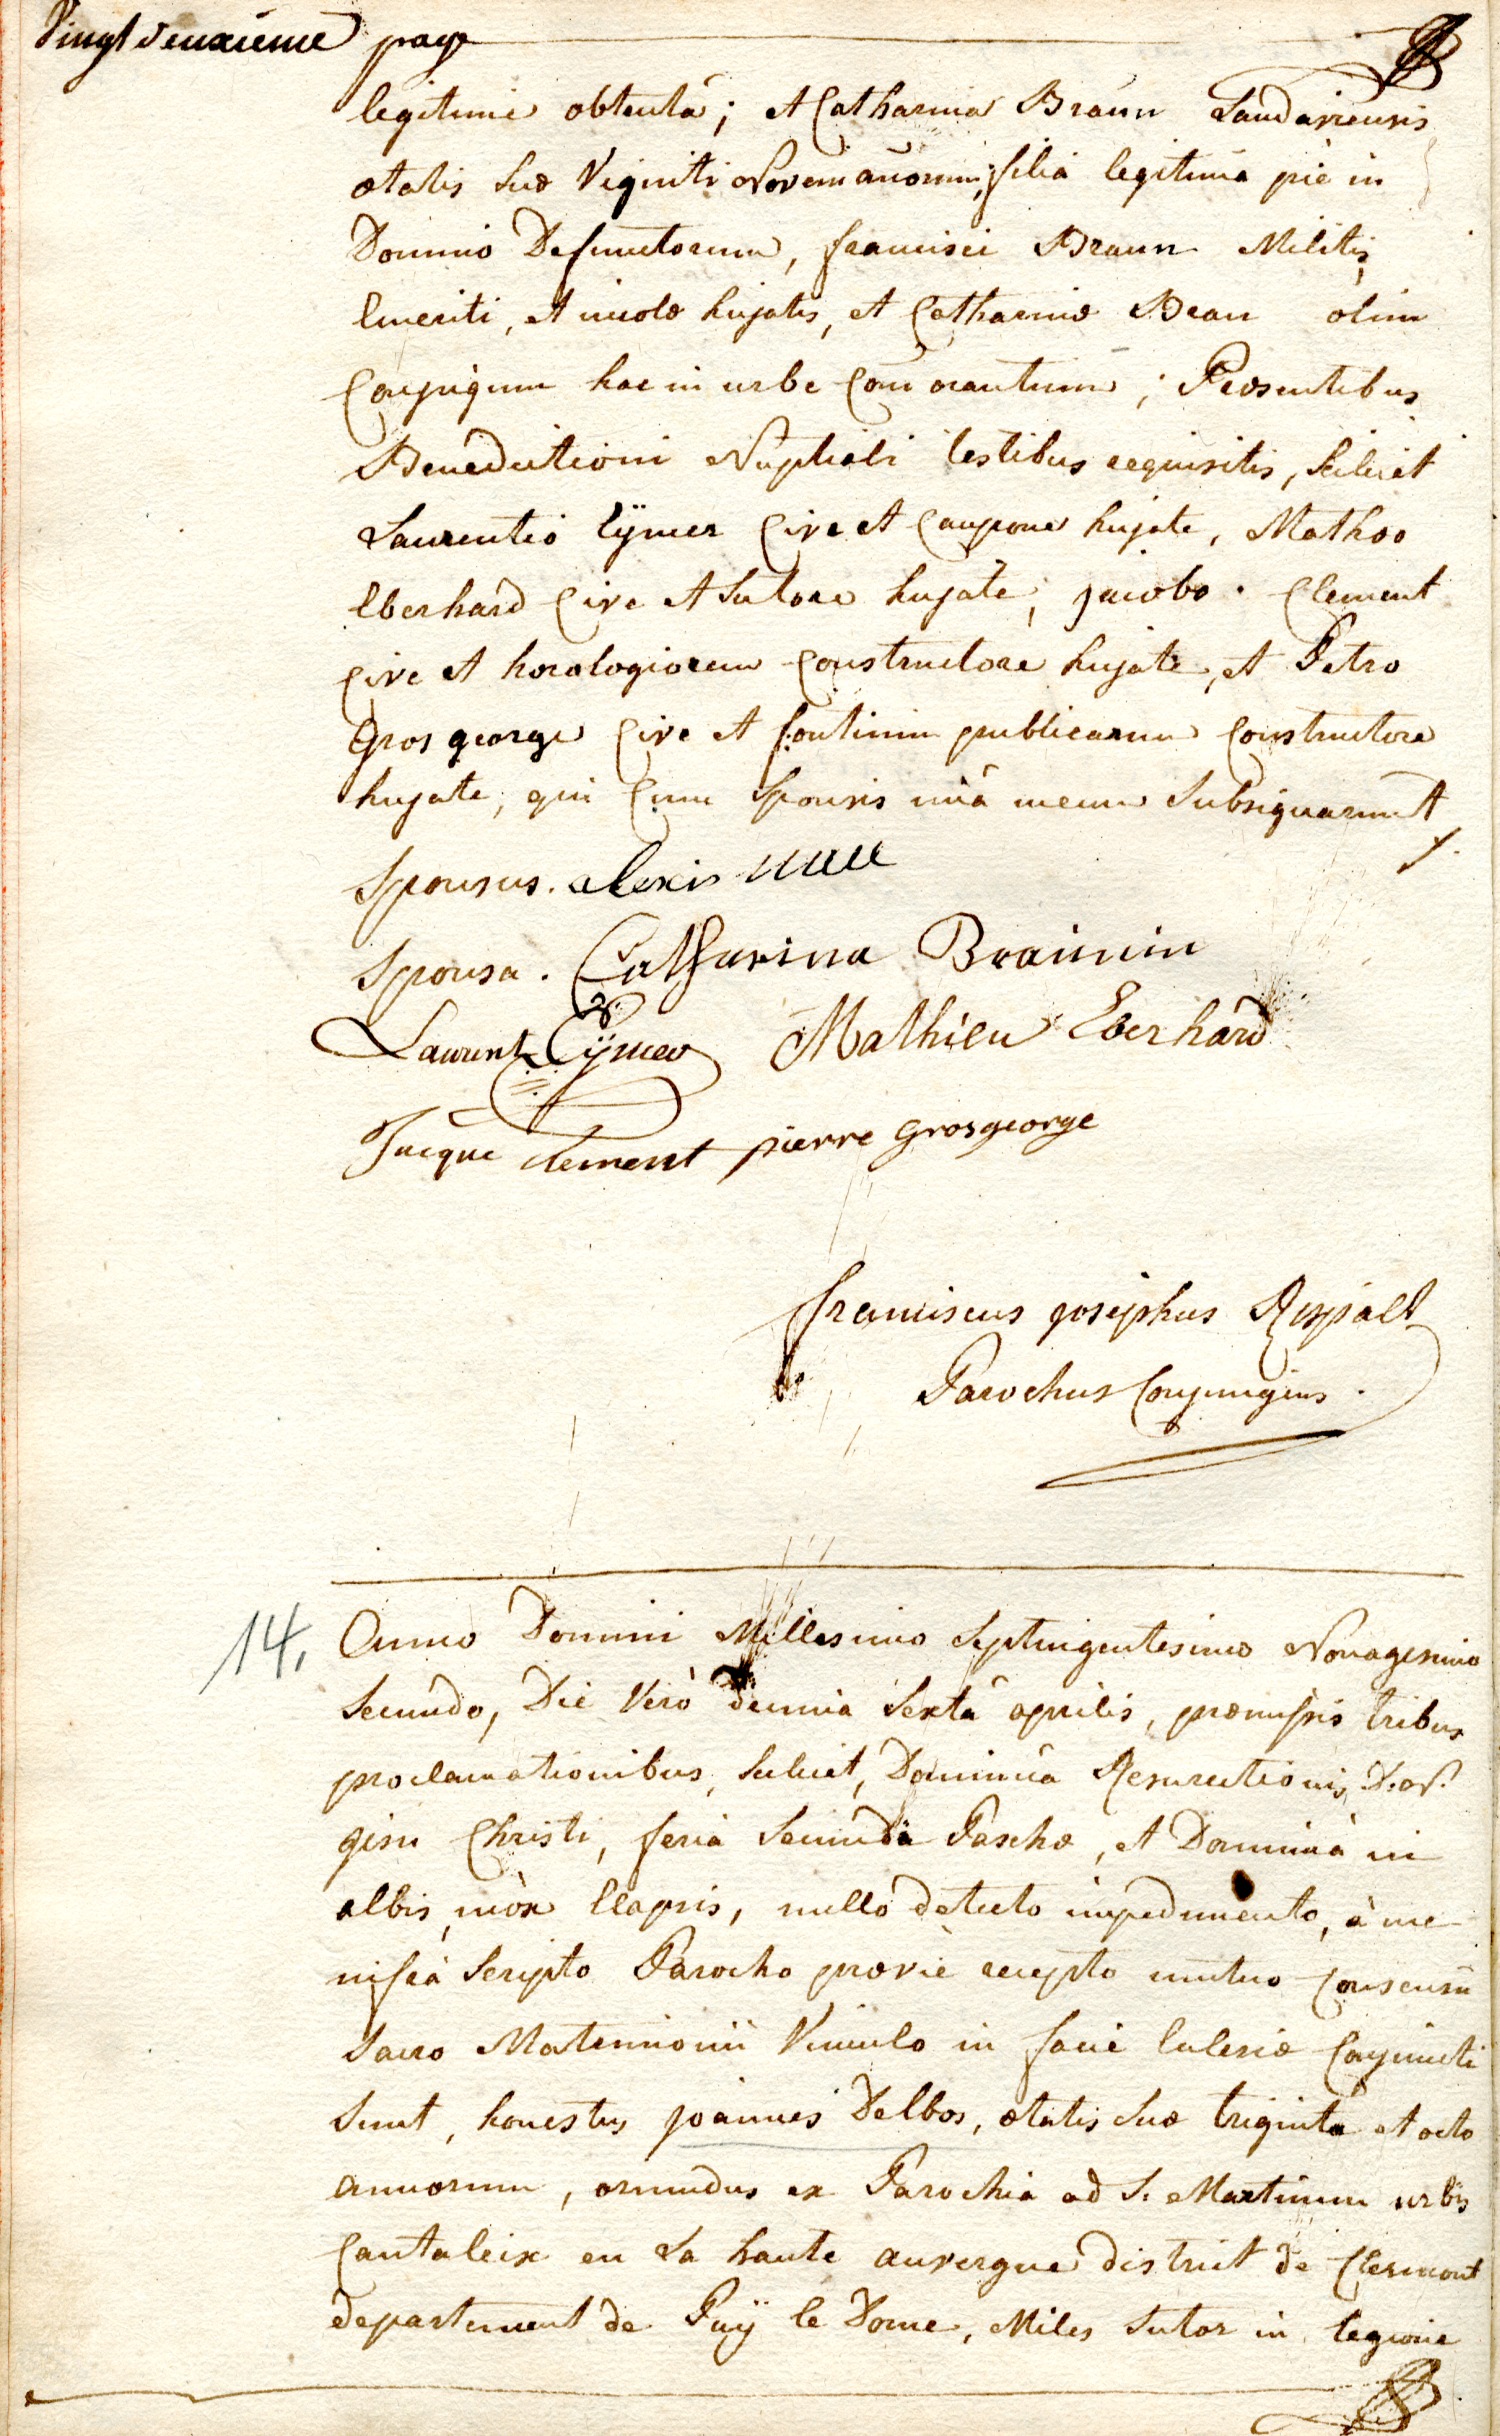 Vingt deuxiéme page
legitimè obtentâ; et Catharina Braun Landaviensis
ætatis suæ Viginti Novem añorum, filia legitima piè in
Domino Defunctorum, francisci Braun Militis
Emeriti, et incolæ hujatis, et Catharinæ Bean olim
Conjugum hac in urbe Com̄orantium; Præsentibus
Benedictioni Nuptiali testibus requisitis, scilicet
Laurentio Eÿmer Cive et Caupone hujate, Mathæo
Eberhard Cive et Sutore hujate, jacobo Clement
Cive et horologiorum Constructore hujate, et Petro
Grosgeorge Cive et fontium publicarum Constructore
hujate, qui Cum Sponsis unà mecum Subsignarunt
Sponsus. alexis
Sponsa. Catharina Braunin
Laurent Eÿmer Mathieu Eberhard
Jacque clement pierre grosgeorge
franciscus josephus Respalt
Parochus Conjungens.
14. Anno Domini Millesimo Septingentesimo Nonagesimo
Secundo, Die Verò decima Sextâ aprilis, præmissis tribus
proclamationibus, scilicet, Dominicâ Resurectionis D: N:
jesu Christi, feriâ Secundâ Paschæ, et Dominicâ in
albis, mòx Elapsis, nullo detecto impedimento, à me
infrà Scripto Parocho prævie recepto mutuo Consensu
Sacro Matrimonii Vinculo in facie Eclesiæ Conjuncti
Sunt, honestus joannes Delbos, ætatis suæ triginta et octo
annorum, oriundus ex Parochia ad S. Martinum urbis
Cantaleix en La haute auvergne district de Clermont
departement de Puÿ le Dome, Miles Sutor in legione